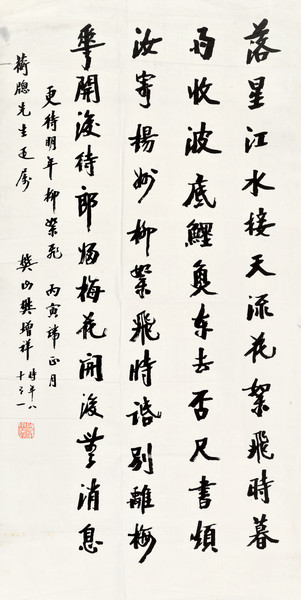 落星江水接天流花絮飛時暮
雨收波底鯉魚东去否尺書煩
汝寄楊州柳絮飛時話別離梅
華開後待郎歸梅花開後無消息
更待明年柳絮飛 丙寅端正月
先生正屬
樊山樊增祥時年八十一